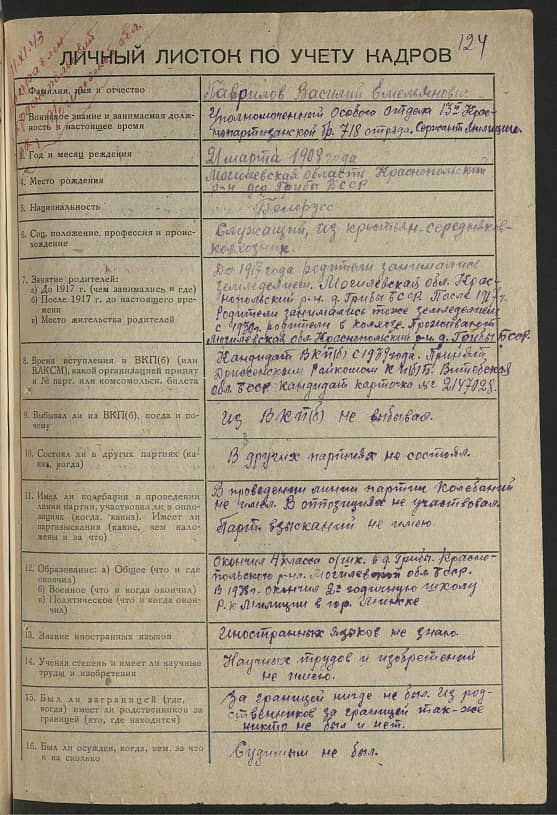 11.XI.43
124
ЛИЧНЫЙ ЛИСТОК ПО УЧЕТУ КАДРОВ
1. Фамилия, имя и отчество
Гаврилов Василий Емельянович
2. Воинское звание и занимаемая должность в настоящее время
Уполномоченный Особого отдела 13й Крас-
нопартизанской бр. 718 отряда. Сержант Милиции.
3. Год и месяц рождения
21 марта 1908 года
4. Место рождения
Могилевской области Краснопольский
р-н дер Грибы БССР
5. Национальность
Белорусс
6. Соц. положение, профессия и проис-
хождение
Служащий, из крестьян. середняков-
колхозник.
7. Занятие родителей:
а) До 1917 г. (чем занимались и где)
б) После 1917 г. до настоящего вре-
мени
в) Место жительства родителей
До 1917 года родители занимались
земледелием. Могилевской обл. Крас-
нопольский р-н. д. Грибы БССР. После 1917 г.
Родители занимались тоже земледелием
с 1930г. родители в колхозе. Проживают
Могилевская обл. Краснопольский р-н. д. Грибы БССР.
8. Время вступления в ВКП(б) (или
ВЛКСМ), какой организацией принят
и № парт. или комсомольск. билета
Кандидат ВКП(б) с 1939 года. Принят
Дриссенским Райкомом КП(б)Б. Витебская
обл. БССР. Кандидат карточка № 2147028.
9. Выбывал ли из ВКП(б), когда и по-
чему
Из ВКП(б) не выбывал.
10. Состоял ли в других партиях (ка-
ких, когда)
В других партиях не состоял.
11. Имел ли колебания в проведении
линии партии, участвовал ли в оппо-
зициях (когда, каких). Имеет ли
партвзыскания (какие, кем нало-
жены и за что)
В проведении линии партии Колебаний
не имел. В оппозициях не участвовал.
Парт. взысканий не имею.
12. Образование: а) Общее (что и где
окончил)
б) Военное (что и когда окончил)
в) Политическое (что и когда окон-
чил)
Окончил 4 класса в д. Грибы. Красно-
польского р-на. Могилевской обл. БССР.
В 1938г. окончил 2х годичную школу
Р. К Милиции в гор. Минске
13. Знание иностранных языков
Иностранных языков не знаю.
14. Ученая степень и имеет ли научные
труды и изобретения
Научных трудов и изобретений
не имею.
15. Был ли заграницей (где,
когда) имеет ли родственников за
границей (кто, где находится)
За границей нигде не был. Из род-
ственников за границей так-же
никто не был и нет.
16. Был ли осужден, когда, кем, за что
и на сколько
Судимым не был.